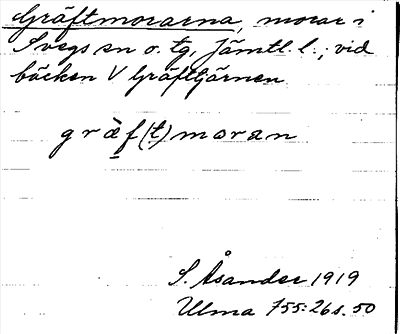 Gräftmorarna, morar i
Svegs sn o. tg, Jämtl. l.; vid
bäcken V Gräftjärnen.
gràf(t)moran
S. Åsander 1919
Ulma 755:26 s. 50